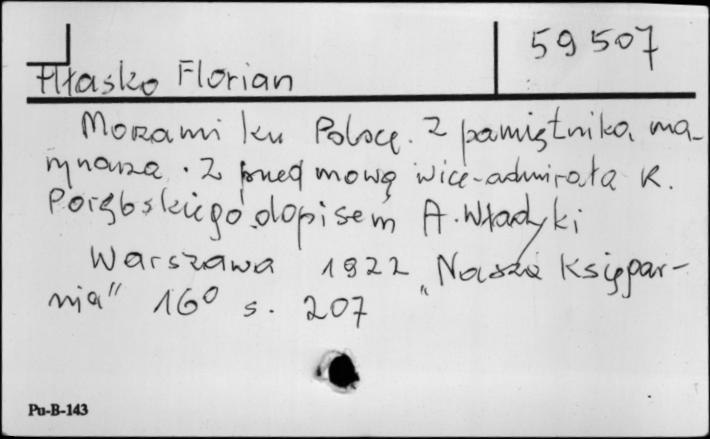 59507
Hłasko Florian
Morzami ku Polsce. Z pamiętnika ma-
rynarza. Z przed mową wice-admirała K.
Porębskiego, dopisem A. Władyki
Warszawa 1922 "Nasza Księgar-
nia" 16° s. 207
Pu-B-143